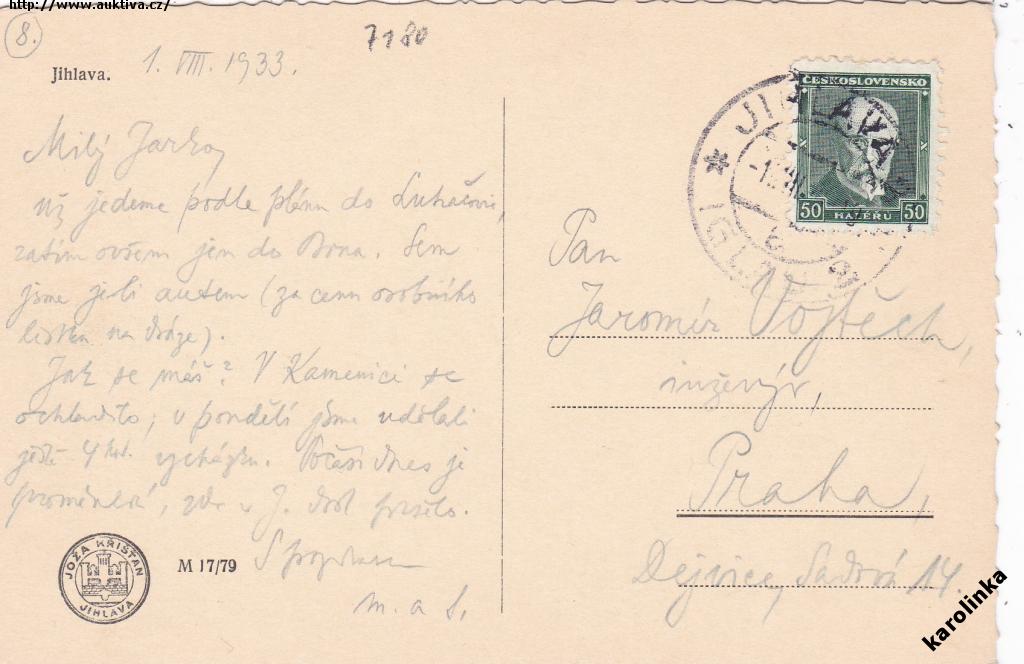 http://www.auktiva.cz/
8.
7180
Jihlava. 1. VIII. 1933.
Milý Jarko,
už jedeme podle plánu do Luhačovic,
zatím ovšem jen do Brna. Sem
jsme jeli autem (za cenu osobního
lístku na dráze).
Jak se máš? V Kamenici se
ochladilo; v pondělí jsme udělali
ještě 4 hod. vycházku. Počasí dnes je
proměnlivé, zde v J. dost pršelo.
S pozdravem
m. a t.
JOŽA KŘIŠŤAN
JIHLAVA
M 17/79
ČESKOSLOVENSKO
50 HALÉŘŮ 50
JIHLAVA
* IGLAU
Pan
Jaromír Vojtěch,
inženýr,
Praha,
Dejvice, Sadová 14.
karolinka